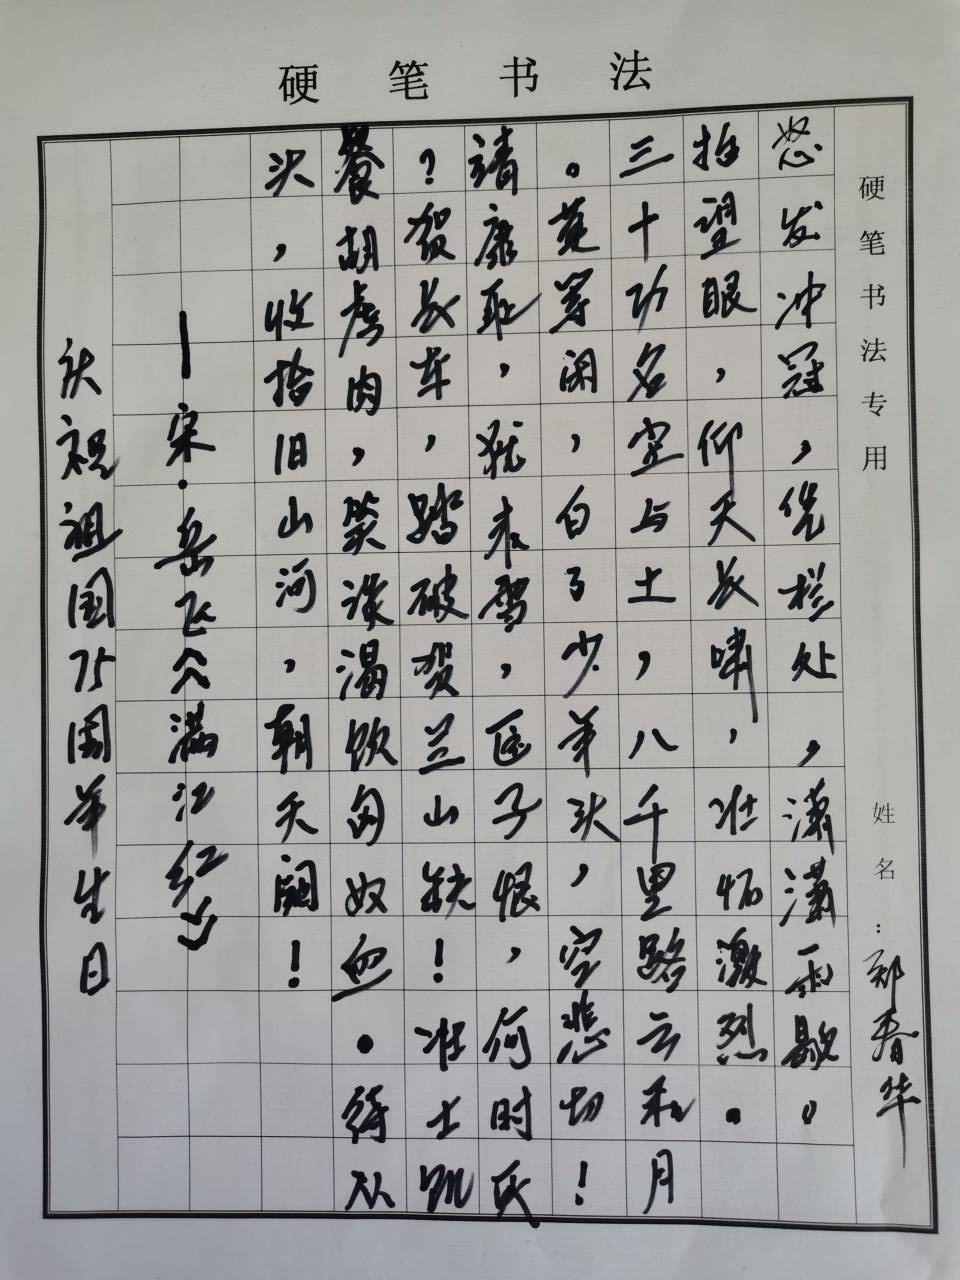 硬笔书法
硬笔书法专用
姓名:郑春华
怒发冲冠,凭栏处,潇潇雨歇,
抬望眼,仰天长啸,壮怀激烈。
三十功名空与土,八千里路云和月
。莫等闲,白了少年头,空悲切!
靖康耻,犹未雪,臣子恨,何时灭
?驾长车,踏破贺兰山缺!壮士饥
餐胡虏肉,笑谈渴饮匈奴血。待从
头,收拾旧山河,朝天阙!
—宋·岳飞《满江红》
庆祝祖国75周年生日